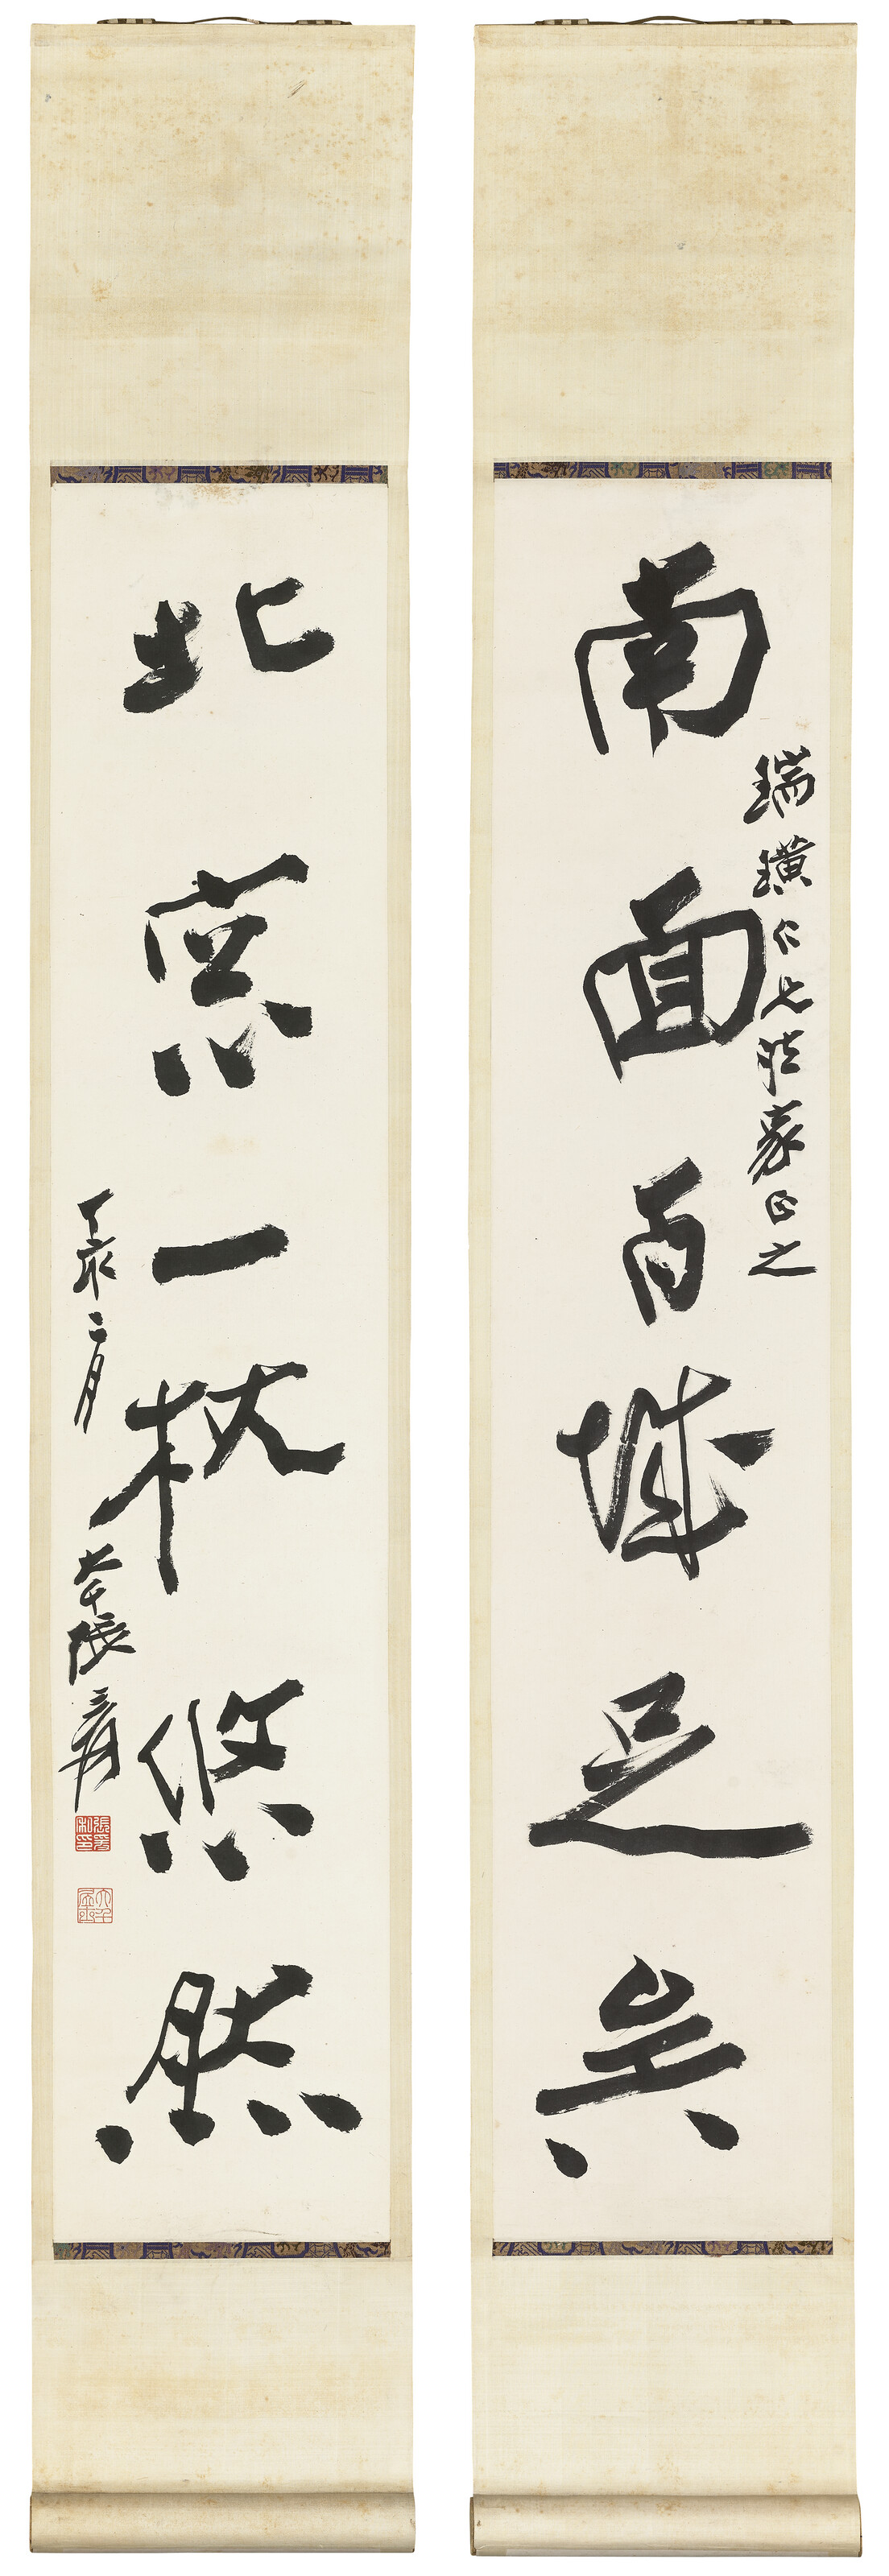 南面百城足矣
瑞璜仁兄法家正之
北窗一枕悠然
丁亥二月
大千張爰
張爰私印
大千居士